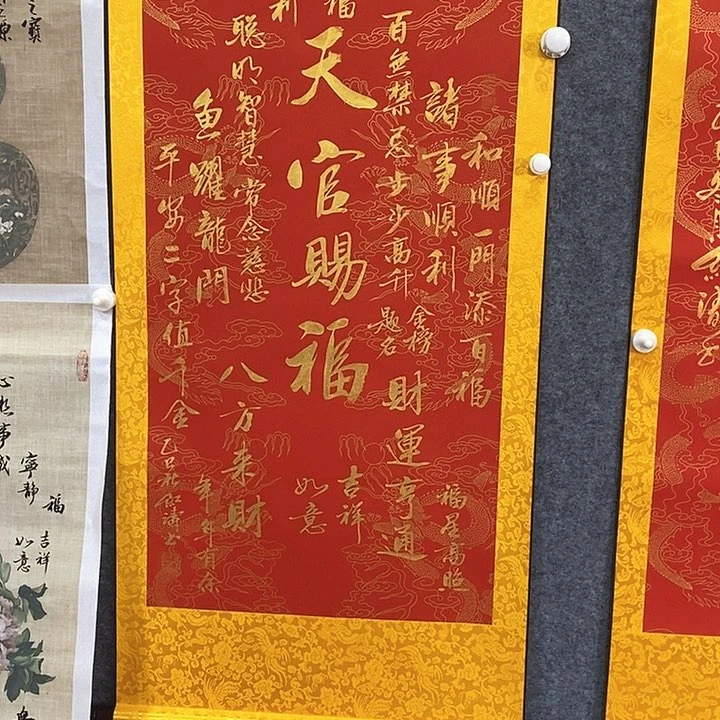 和順一門添百福
諸事順利
福星高照
百無禁忌步步高升
金榜
題名
財運亨通
福
天官賜福
吉祥
如意
利
聰明智慧常念慈悲
八方来財
魚躍龍門
年年有余
平安二字值千金
乙巳
心想事成
寧静
福
吉祥
如意